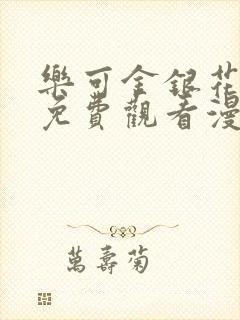 樂可金銀花
免費觀看漫
萬壽菊